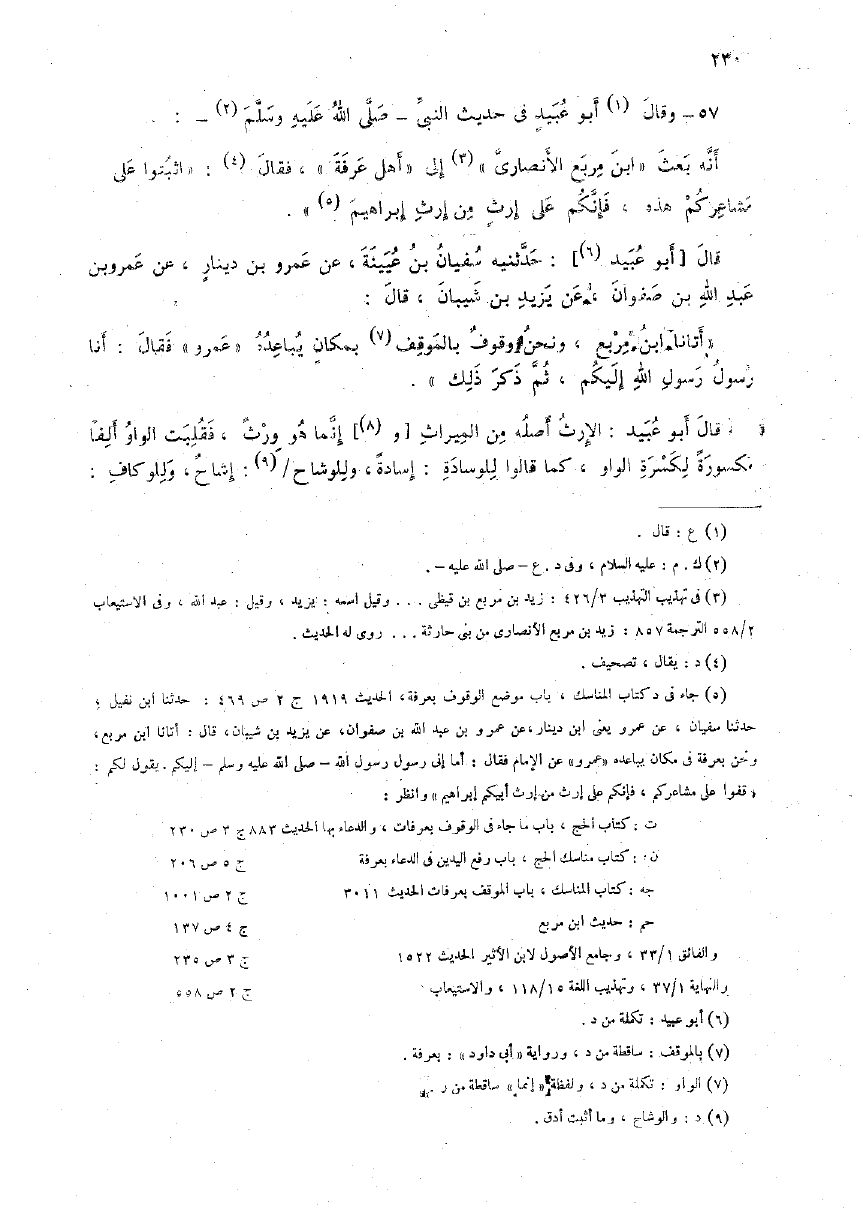 ٢٣٠
٥٧ – وقالَ (١) أَبو عُبَيدٍ فى حديث النبىِّ – صَلَّى اللهُ عَلَيهِ وسَلَّمَ (٢) – :
أَنَّه بَعثَ «ابنَ مِربَع الأَنصارىَّ» (٣) إلى «أَهل عَرفَةَ» ، فقالَ (٤) : «اثبُتوا عَلى
مَشاعِرِكُمْ هذه ، فَإِنَّكُم عَلى إرثٍ مِن إرثِ إبراهيمَ (٥)» .
قالَ [أَبو عُبَيد (٦)] : حَدَّثنيه سُفيانُ بنُ عُيَينَةَ ، عن عَمرو بن دينارٍ ، عن عَمرو بن
عَبدِ اللهِ بن صَفوانَ ، عَن يَزيدِ بن شَيبانَ ، قالَ :
«أَتانا ابنُ مِرْبع ، ونحنُ وقوفٌ بالمَوقِف (٧) بمكانٍ يُباعِدُهُ «عَمرو» فَقالَ : أَنا
رَسولُ رَسولِ اللهِ إلَيكُم ، ثُمَّ ذكرَ ذَلِك» .
قالَ أَبو عُبَيد : الإرثُ أَصلُه مِن المِيراثِ [و (٨)] إنَّما هُو وِرْثٌ ، فَقُلِبَت الواوُ أَلِفاً
مَكسورَةً لِكَسْرَةِ الواو ، كما قالوا لِلوسادَةِ : إسادةٌ ، ولِلوشاح/ (٩) : إشاحٌ ، وَلِلوكافِ :
(١) ع : قال .
(٢) ك . م : عليه السلام ، وفى د . ع – صلى الله عليه – .
(٣) فى تهذيب التهذيب ٤٢٦/٣ : زيد بن مربع بن قيظى . . . وقيل اسمه : يزيد ، وقيل : عبد الله ، وفى الاستيعاب
٥٥٨/٢ الترجمة ٨٥٧ : زيد بن مربع الأنصارى من بنى حارثة . . . روى له الحديث .
(٤) د : يقال ، تصحيف .
(٥) جاء فى د كتاب المناسك ، باب موضع الوقوف بعرفة، الحديث ١٩١٩ ج ٢ ص ٤٦٩ : حدثنا ابن نفيل ،
حدثنا سفيان ، عن عمرو يعنى ابن دينار، عن عمرو بن عبد الله بن صفوان، عن يزيد بن شيبان، قال : أتانا ابن مربع ،
ونحن بعرفة فى مكان يباعده «عمرو» عن الإمام فقال : أما إنى رسول رسول الله – صلى الله عليه وسلم – إليكم . يقول لكم :
« قفوا على مشاعركم ، فإنكم على إرث من إرث أبيكم إبراهيم » وانظر :
ت : كتاب الحج ، باب ما جاء فى الوقوف بعرفات ، والدعاء بها الحديث ٨٨٣ ج ٣ ص ٢٣٠
ن : كتاب مناسك الحج ، باب رفع اليدين فى الدعاء بعرفة ج ٥ ص ٢٠٦
جه : كتاب المناسك ، باب الموقف بعرفات الحديث ٣٠١١ ج ٢ ص ١٠٠١
حم : حديث ابن مربع ج ٤ ص ١٣٧
والفائق ٣٣/١ ، وجامع الأصول لابن الأثير الحديث ١٥٢٢ ج ٣ ص ٢٣٥
والنهاية ٣٧/١ ، وتهذيب اللغة ١١٨/١٥ ، والاستيعاب ج ٢ ص ٥٥٨
(٦) أبو عبيد : تكلة من د .
(٧) بالموقف : ساقطة من د ، ورواية «أبى داود» : بعرفة .
(٧) الواو : تكلة من د ، ولفظة «إنما» ساقطة من ر
(٩) د : والوشاح ، وما أثبت أدق .